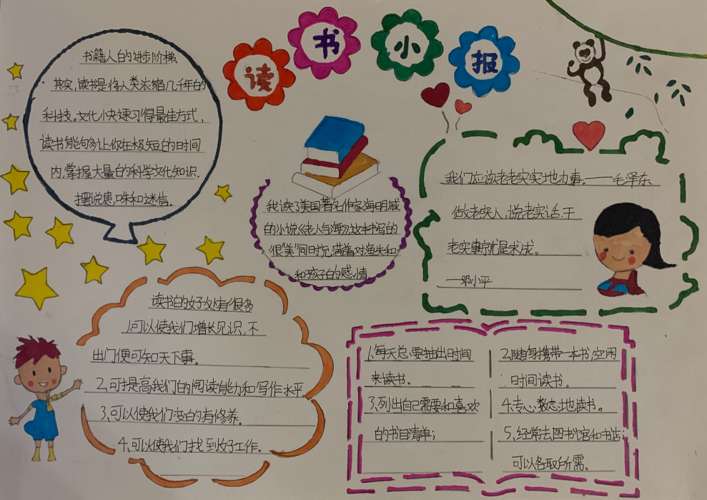 读书小报
书籍人白的进步阶梯
其实,读书是将人类浓缩几千年的
科技。文化小央速习得最佳方式,
读书能够多让你在极短的时间
内,掌握大量的科学文化知识.
摆说愚味和迷信。
我读了美国著名作家海明威
的小说《老人与海》这本书写的
很美同时充满着对渔夫和
和孩子的感情
我们应该老老实实地办事。——毛泽东
做老实人,说老实话,干
老实事就是求成。
——邓小平
读书白的好处有很多
1.可以使我们增长见识,不
出门便可知天下事。
2.可提高我们白的阅读能力和写作水平
3.可以使我们变白的有修养。
4.可以使我们找到好工作。
1.每天总要抽出时间
来读书。
3.列出自己需要和喜欢
的书目清单;
2.随身携带一本书,空闲
时间读书。
4.专心致志地读书。
5.经常去图书馆和书店;
可以各取所需.